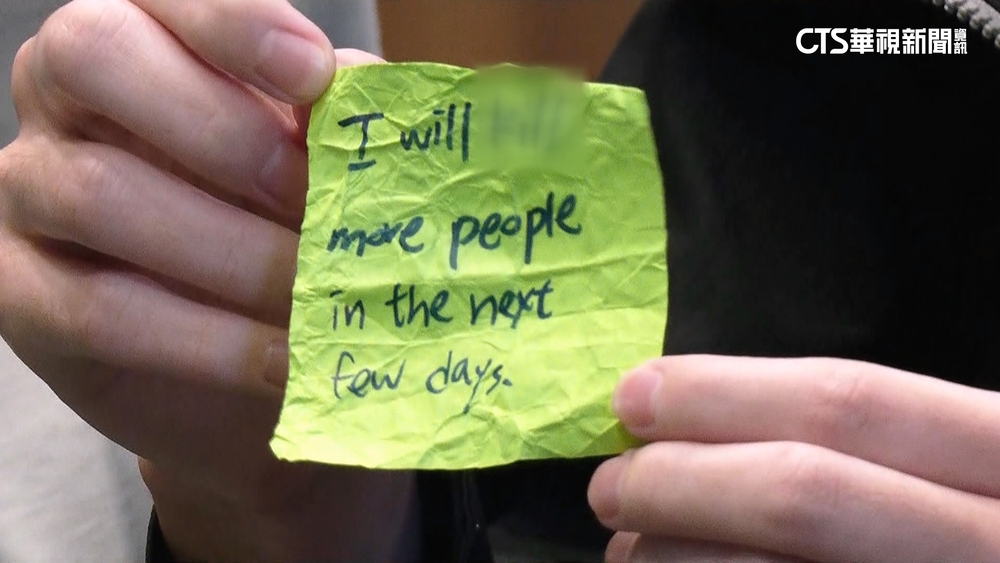 CTS華視新聞資訊
I will
more people
in the next
few days.